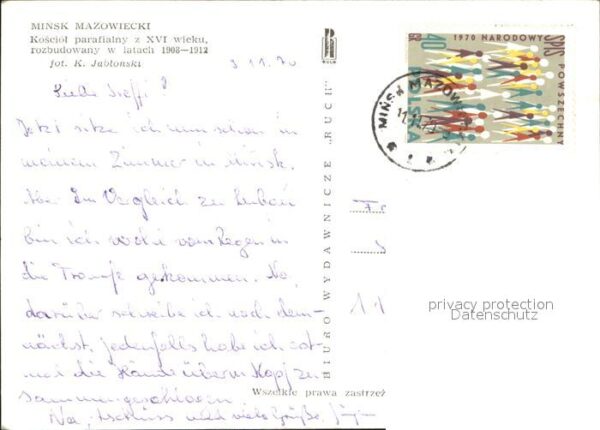 MIŃSK MAZOWIECKI
Kościół parafialny z XVI wieku,
rozbudowany w latach 1908—1912
fot. K. Jabłoński
3 11. 70
Liebe Steffi!
Jetzt sitze ich nun schon in
meinem Zimmer in Mińsk.
Aber Im Vergleich zu
bin ich vom Regen in
die Traufe gekommen. Na,
darüber schreibe ich noch dem-
nächst, jedenfalls habe ich erst-
mal die Hände überm Kopf zu-
sammengeschlagen.
Na, tschüss und viele Grüße.
BIURO WYDAWNICZE „RUCH"
Wszelkie prawa zastrzeż
1970 NARODOWY
SPIS POWSZECHNY
40 GR
POLSKA
MIŃSK MAZOWIECKI
11
privacy protection
Datenschutz